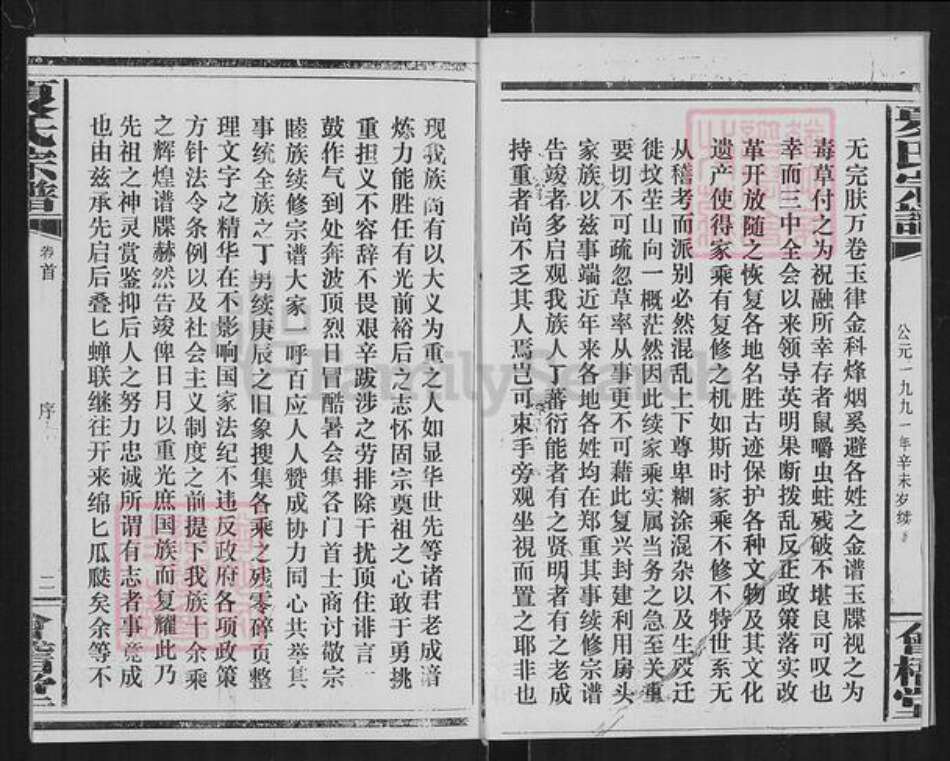 公元一九九一年辛未岁续
无完肤万卷玉律金科烽烟奚避各姓之金谱玉牒视之为
毒草付之为祝融所幸存者鼠嚼虫蛀残破不堪良可叹也
幸而三中全会以来领导英明果断拨乱反正政策落实改
革开放随之恢复各地名胜古迹保护各种文物及其文化
遗产使得家乘有复修之机如斯时家乘不修不特世系无
从稽考而派别必然混乱上下尊卑糊涂混杂以及生殁迁
徙坟茔山向一概茫然因此续家乘实属当务之急至关重
要切不可疏忽草率从事更不可藉此复兴封建利用房头
家族以兹事端近年来各地各姓均在郑重其事续修宗谱
告竣者多启观我族人丁蕃衍能者有之贤明者有之老成
持重者尚不乏其人焉岂可束手旁观坐視而置之耶非也
现我族尚有以大义为重之人如显华世先等诸君老成谙
炼力能胜任有光前裕后之志怀固宗奠祖之心敢于勇挑
重担义不容辞不畏艰辛跋涉之劳排除干扰顶住诽言一
鼓作气到处奔波顶烈日冒酷暑会集各门首士商讨敬宗
睦族续修宗谱大家一呼百应人人赞成协力同心共举其
事统全族之丁男续庚辰之旧象搜集各乘之残零碎页整
理文字之精华在不影响国家法纪不违反政府各项政策
方针法令条例以及社会主义制度之前提下我族十余乘
之辉煌谱牒赫然告竣俾日月以重光庶国族而复耀此乃
先祖之神灵赏鉴抑后人之努力忠诚所谓有志者事竟成
也由兹承先启后叠匕蝉联继往开来绵匕瓜瓞矣余等不
氏宗譜
卷首
序
二